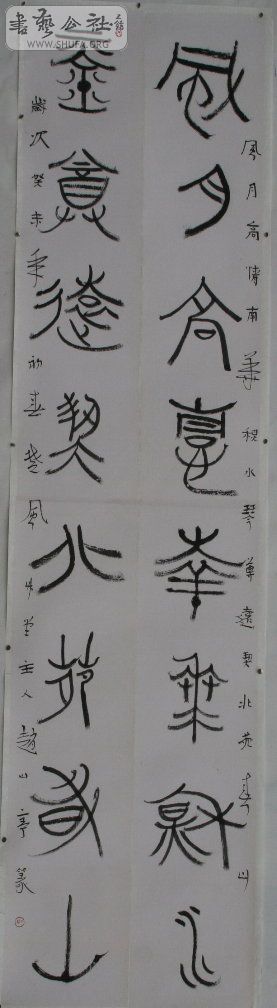 書藝公社
WWW.SHUFA.ORG
風月高情南華秋水
琴尊遠契北苑春山
風月高情南華秋水琴尊遠契北苑春山
歲次癸未年初春楚風竹堂主人趙山亭篆